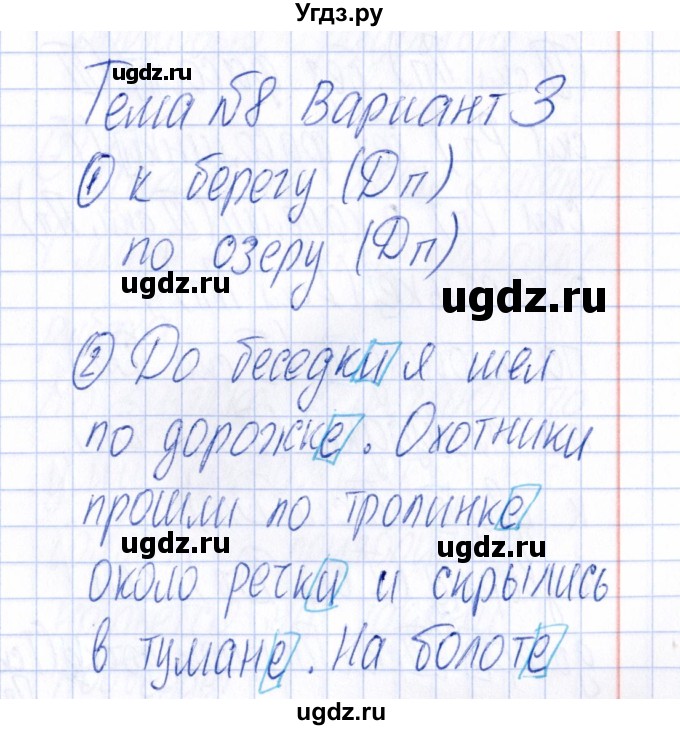 Угдз.ру
ugdz.ru
Тема №8 Вариант 3
① к берегу (Дп)
по озеру (Дп)
ugdz.ru
ugdz.ru
② До беседки я шел
по дорожке. Охотники
прошли по тропинке
ugdz.ru
ugdz.ru
около речки и скрылись
в тумане. На болоте
ugdz.ru